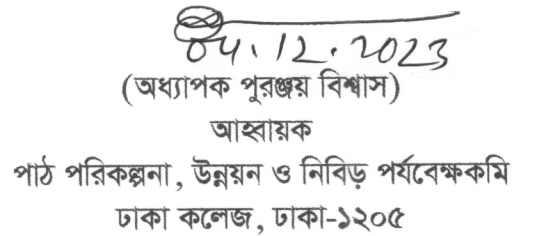 04.12.2023
(অধ্যাপক পুরঞ্জয় বিশ্বাস)
আহ্বায়ক
পাঠ পরিকল্পনা, উন্নয়ন ও নিবিড় পর্যবেক্ষকমি
ঢাকা কলেজ, ঢাকা-১২০৫